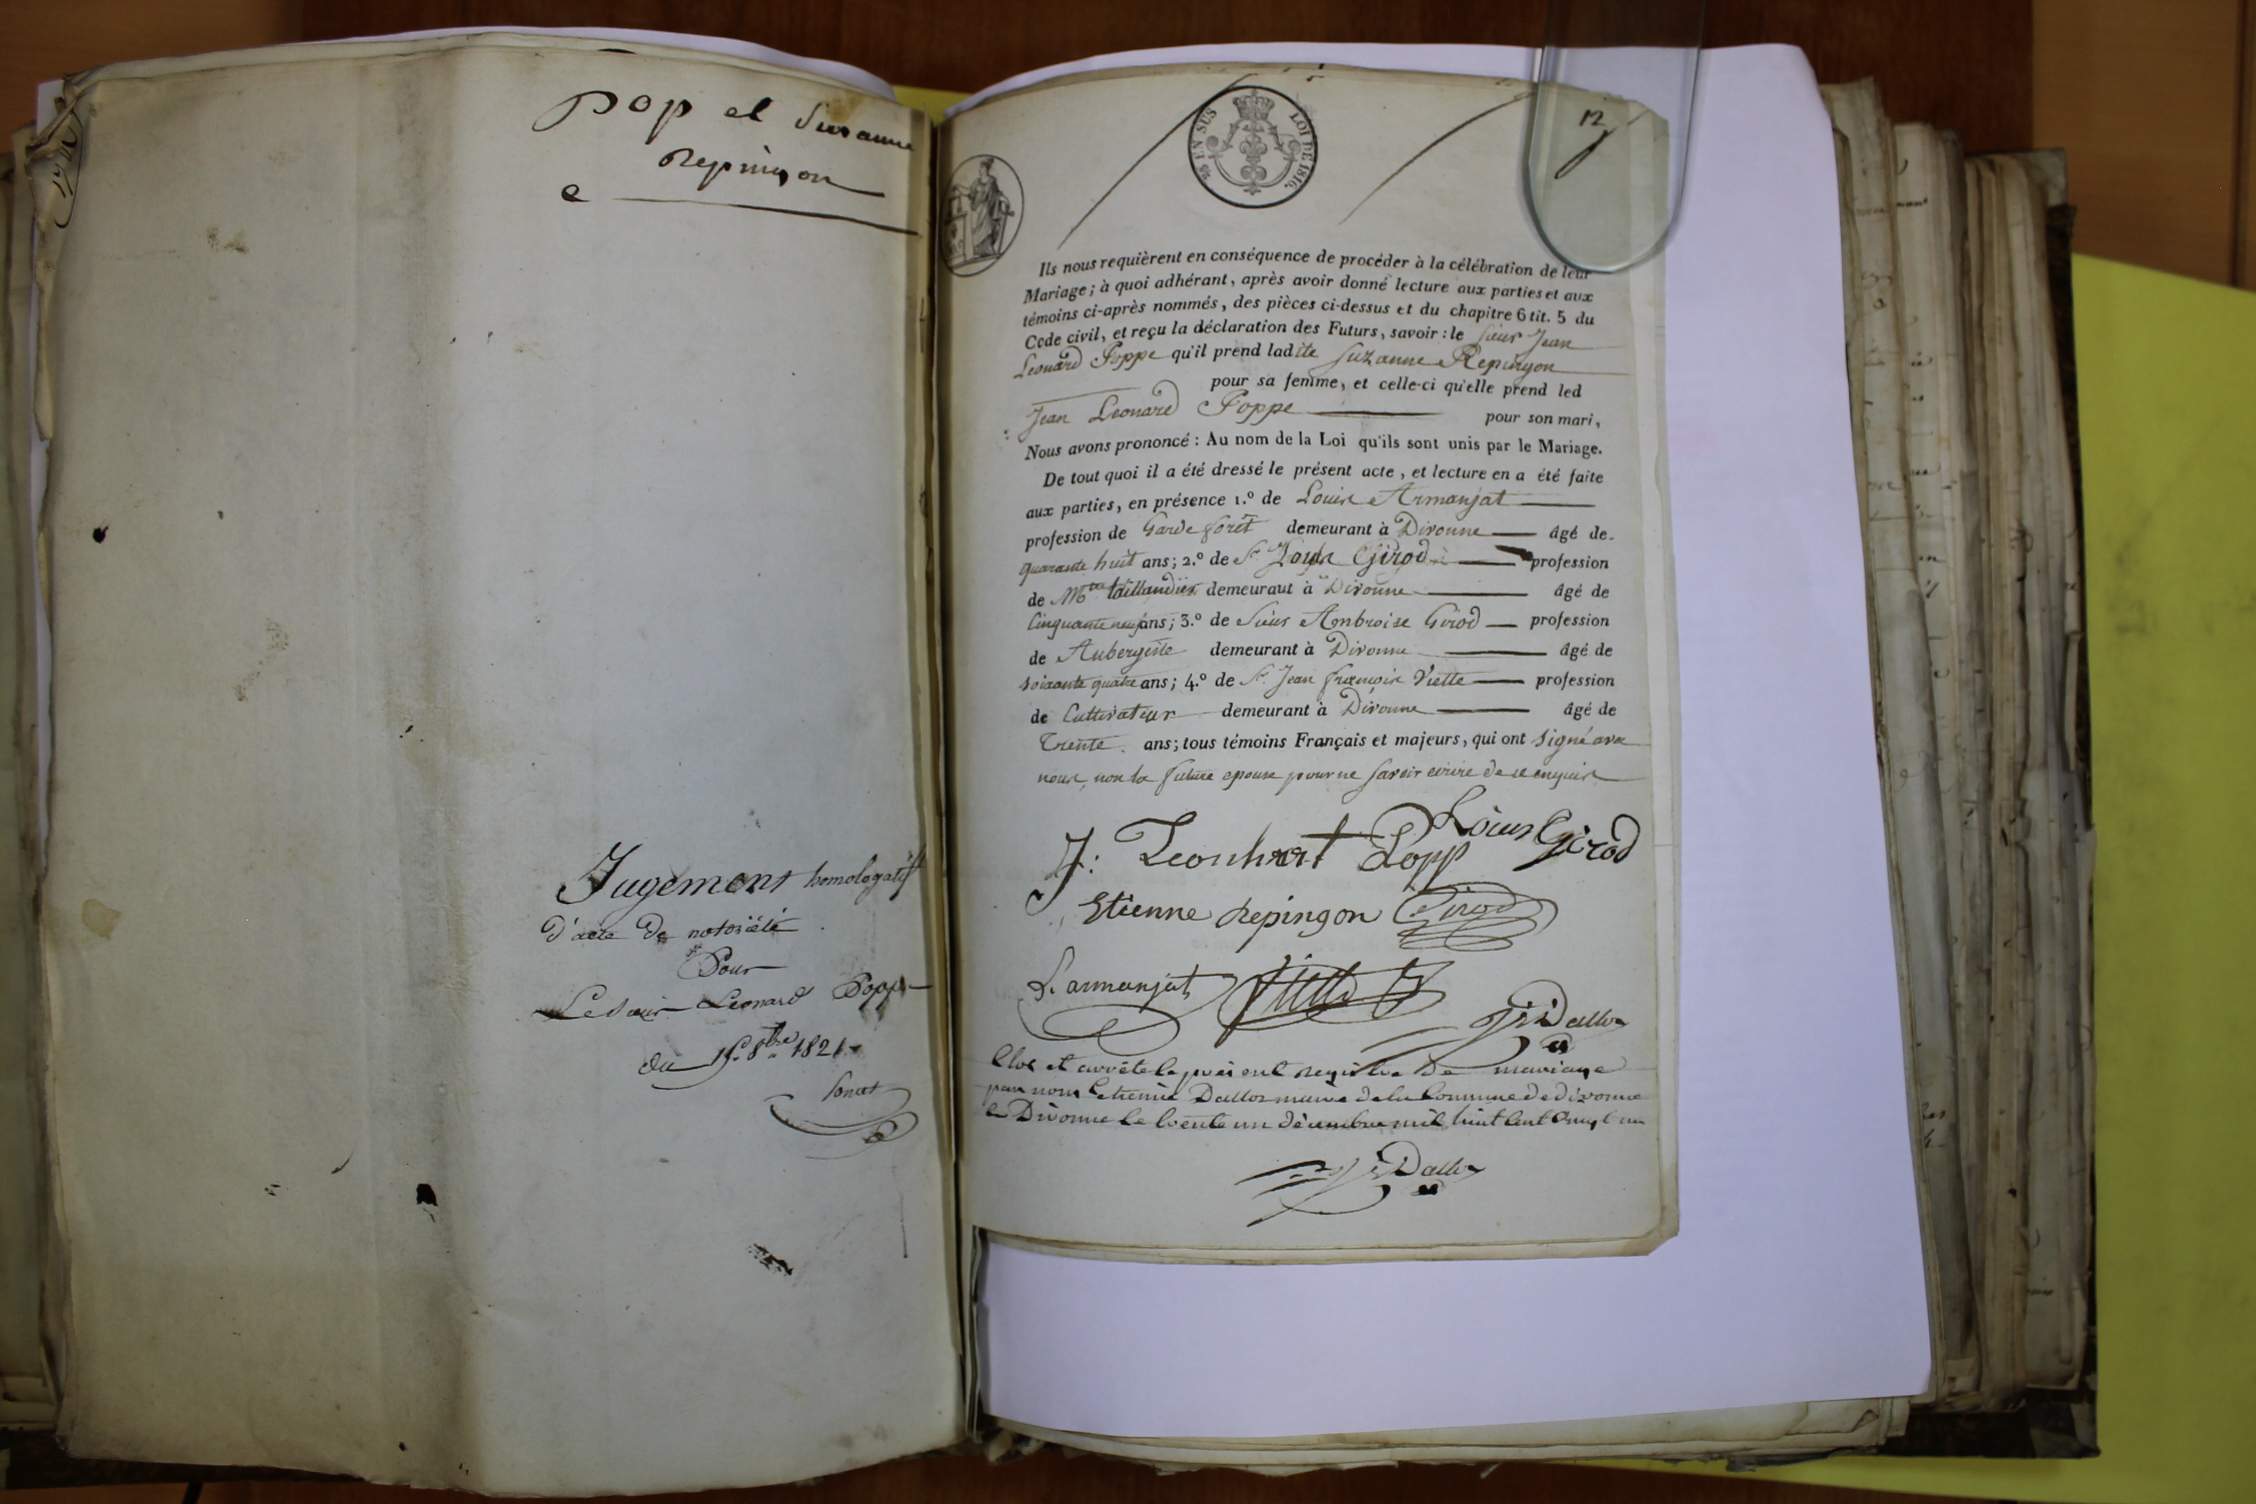 pop et Suzanne
Repingon
Jugement homologatif
d'acte de notoriété
Pour
Le sieur Léonard Popp
du 15. 8bre 1821.
12
25 EN SUS
LOI DE 1816.
Ils nous requièrent en conséquence de procéder à la célébration de leur
Mariage; à quoi adhérant, après avoir donné lecture aux parties et aux
témoins ci-après nommés, des pièces ci-dessus et du chapitre 6 tit. 5 du
Code civil, et reçu la déclaration des Futurs, savoir : le sieur Jean
Leonard Poppe qu'il prend ladite Suzanne Repingon
pour sa femme, et celle-ci qu'elle prend led
Jean Leonard Poppe pour son mari,
Nous avons prononcé : Au nom de la Loi qu'ils sont unis par le Mariage.
De tout quoi il a été dressé le présent acte, et lecture en a été faite
aux parties, en présence 1.º de Louis Armanjat
profession de Garde forêt demeurant à Divonne âgé de
quarante huit ans; 2.º de Sr Louis Girod profession
de Md taillandier demeurant à Divonne âgé de
Cinquante neuf ans; 3.º de Sieur Ambroise Girod profession
de Aubergiste demeurant à Divonne âgé de
soixante quatre ans; 4.º de Sr Jean françois Viette profession
de Cultivateur demeurant à Divonne âgé de
Trente ans; tous témoins Français et majeurs, qui ont signé avec
nous, non la future epouse pour ne savoir ecrire de ce enquise
J: Leonhart Popp Louis Girod
Etienne Repingon Girod
L. armanjat Viette
Dallos
Clos et arrêté le présent Registre de mariage
par nous Etienne Dallos maire de la Commune de divonne
a Divonne le trente un décembre mil huit cent vingt un
Dallos